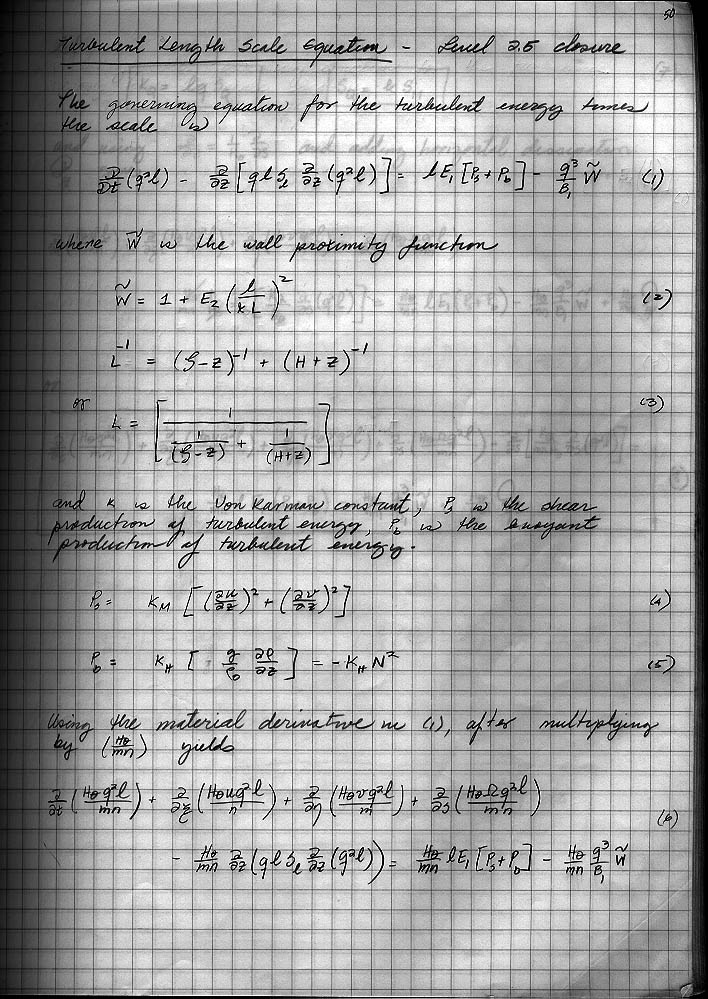 50
Turbulent Length Scale Equation - Level 2.5 closure
The governing equation for the turbulent energy times
the scale is
D/Dt (q²l) - ∂/∂z [q l S_l ∂/∂z (q²l)] = l E₁ [P_s + P_b] - q³/B₁ W̃ (1)
where W̃ is the wall proximity function
W̃ = 1 + E₂ (l/kL)² (2)
L⁻¹ = (ζ-z)⁻¹ + (H+z)⁻¹
or L = [1/(1/(ζ-z) + 1/(H+z))] (3)
and k is the Von Karman constant, P_s is the shear
production of turbulent energy, P_b is the buoyant
production of turbulent energy.
P_s = K_M [(∂u/∂z)² + (∂v/∂z)²] (4)
P_b = K_H [g/ρ₀ ∂ρ/∂z] = -K_H N² (5)
Using the material derivative in (1), after multiplying
by (Hθ/mn) yields
∂/∂t (Hθ q²l/mn) + ∂/∂ξ (Hθ u q²l/n) + ∂/∂η (Hθ v q²l/m) + ∂/∂s (Hθ Ω q²l/mn)
(6)
- Hθ/mn ∂/∂z (q l S_l ∂/∂z (q²l)) = Hθ/mn l E₁ [P_s + P_b] - Hθ/mn q³/B₁ W̃